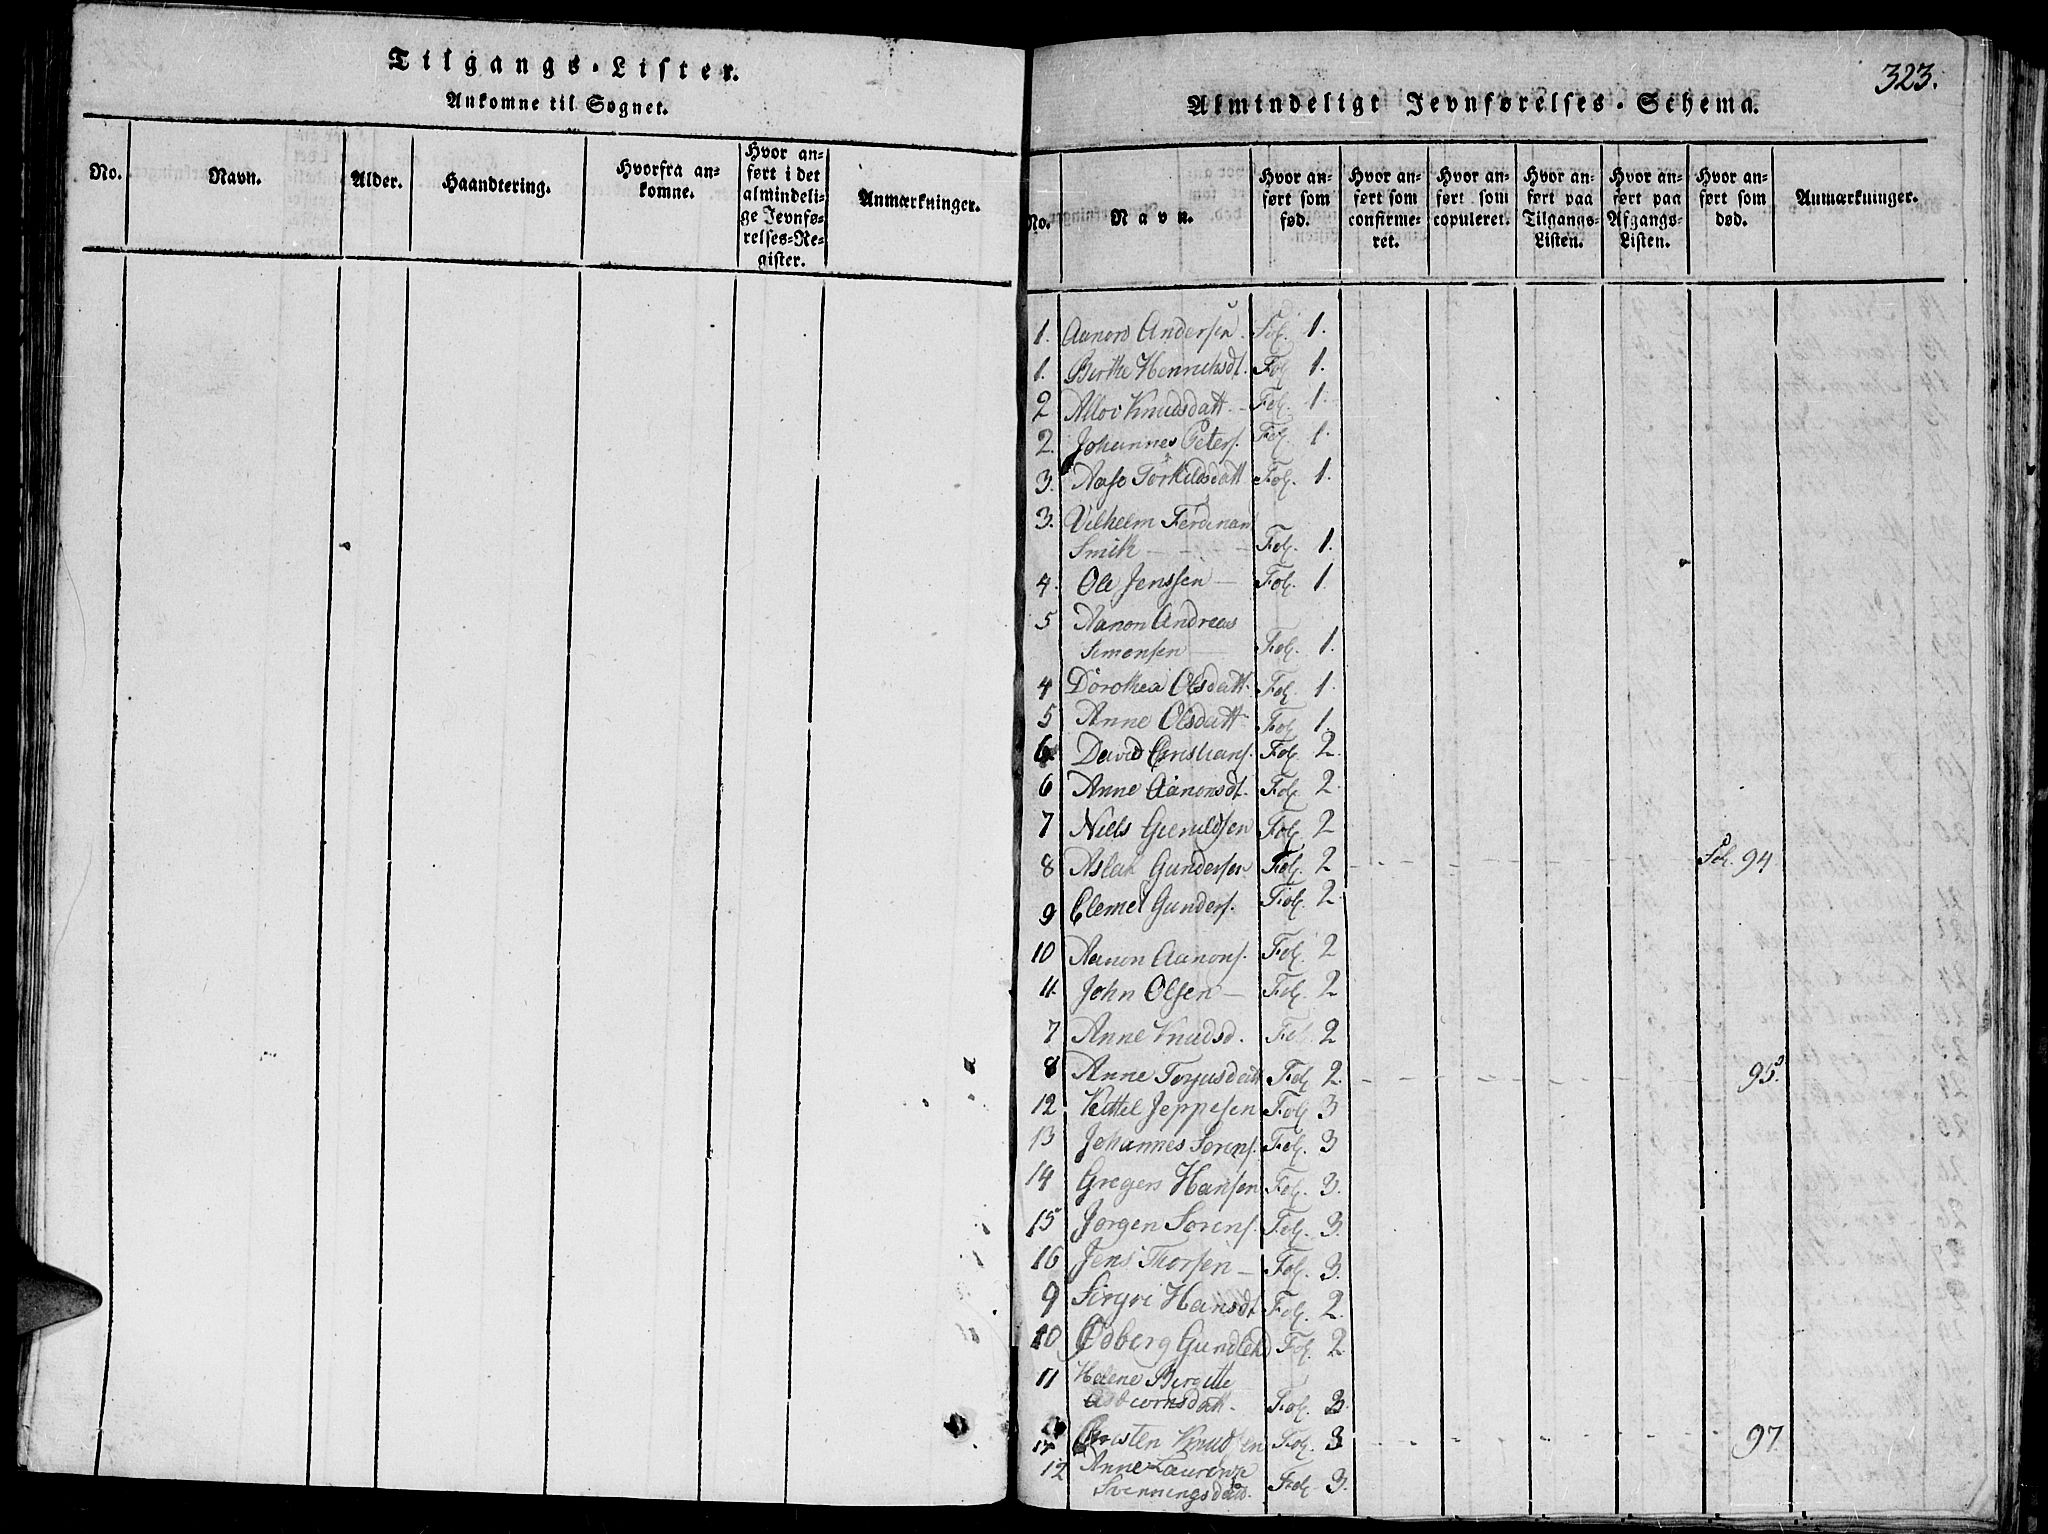 Tilgangs-Lister.
Ankomne til Sognet.
No.
Navn.
Alder.
Haandtering.
Hvorfra an-
komne.
Hvor an-
ført i det
almindeli-
ge Jevnfø-
relses-Re-
gister.
Anmærkninger.
323.
Almindeligt Jevnførelses-Schema.
No.
Navn.
Hvor an-
ført som
fød.
Hvor an-
ført som
confirme-
ret.
Hvor an-
ført som
copuleret.
Hvor an-
ført paa
Tilgangs-
Listen.
Hvor an-
ført paa
Afgangs-
Listen.
Hvor an-
ført som
død.
Anmærkninger.
1. Aanon Andersen. Fol. 1.
1. Birthe Henrichsdt. Fol. 1.
2 Knudsdatt - Fol. 1.
2. Johannes Peters. Fol. 1.
3. Aase Torkildsdatt Fol. 1.
3. Vilhelm Ferdinan
Smith - - - Fol. 1.
4. Ole Jenssen - Fol. 1.
5 Aanon Andreas
Simonsen - Fol. 1.
4 Dorothea Olsdatt. Fol. 1.
5 Anne Olsdatt Fol 1.
6 David Christians. Fol. 2.
6 Anne Aanonsdt. Fol. 2.
7 Niels Fol. 2
8 Aslak Gundersen Fol. 2 - - - - Fol. 94
9 Clemet Gunders. Fol. 2.
10 Aanon Aanons. Fol. 2
11. John Olsen - Fol. 2
7 Anne Knudsd. Fol. 2
8 Anne Torjusdatt Fol. 2. - - - - 95.
12 Kittel Jeppesen Fol. 3
13 Johannes Sørens. Fol. 3
14 Gregers Hansen Fol. 3.
15 Jørgen Sørens. Fol. 3.
16 Jens Thorsen - Fol. 3.
9 Sirgri Hansdt. Fol. 2.
10 Fol. 2
11 Helene Birgitte
Asbiornsdatt. Fol. 3.
17 Christen Knudsen Fol. 3 - - - - 97
12 Anne Laurense
Svenningsdatt. Fol. 3.